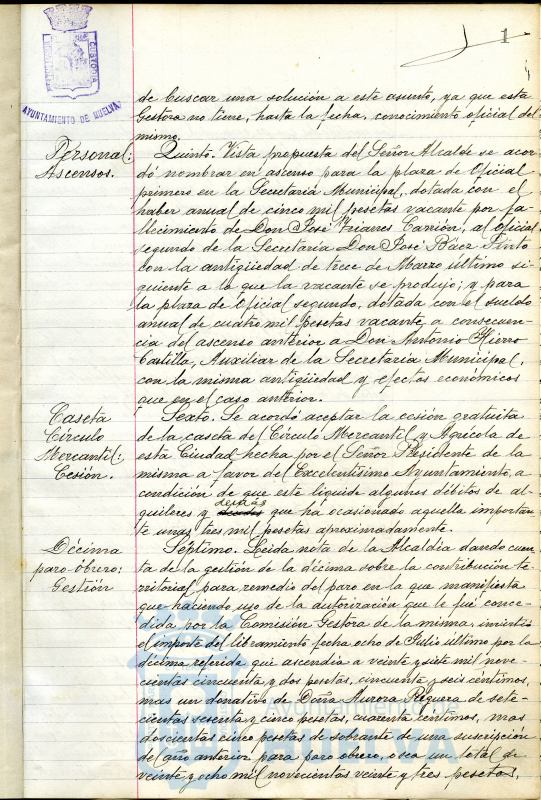 1
AYUNTAMIENTO DE HUELVA
de buscar una solución a este asunto, ya que esta
Gestora no tiene, hasta la fecha, conocimiento oficial del
mismo.
Personal:
Ascensos.
Quinto. Vista propuesta del Señor Alcalde se acor-
dó nombrar en ascenso para la plaza de Oficial
primero en la Secretaría Municipal, dotada con el
haber anual de cinco mil pesetas vacante por fa-
llecimiento de Don José Carrión, al oficial
segundo de la Secretaría Don José Báez Pinto
con la antigüedad de trece de Marzo último si-
guiente a la que la vacante se produjo; y para
la plaza de Oficial segundo, dotada con el sueldo
anual de cuatro mil pesetas vacante a consecuen-
cia del ascenso anterior a Don Antonio Hierro
Castilla, Auxiliar de la Secretaría Municipal,
con la misma antigüedad y efectos económicos
que en el caso anterior.
Caseta
Círculo
Mercantil:
Cesión.
Sexto. Se acordó aceptar la cesión gratuita
de la caseta del Círculo Mercantil y Agrícola de
esta Ciudad hecha por el Señor Presidente de la
misma a favor del Excelentísimo Ayuntamiento, a
condición de que este liquide algunos débitos de al-
quileres y demás que ha ocasionado aquella importan-
te unas tres mil pesetas aproximadamente.
Décima
paro obrero:
Gestión
Séptimo. Leida nota de la Alcaldía dando cuen-
ta de la gestión de la décima sobre la contribución te-
rritorial para remedio del paro en la que manifiesta
que haciendo uso de la autorización que le fué conce-
dida por la Comisión Gestora de la misma, invirtió
el importe del libramiento fecha ocho de Julio último por la
décima referida que ascendía a veinte y siete mil nove-
cientas cincuenta y dos pesetas, cincuenta y seis céntimos,
mas un donativo de Doña Aurora de sete-
cientas sesenta y cinco pesetas, cuarenta céntimos, mas
doscientas cinco pesetas de sobrante de una suscripción
del año anterior para paro obrero, o sea un total de
veinte y ocho mil novecientas veinte y tres pesetas,
Ayuntamiento de
HUELVA